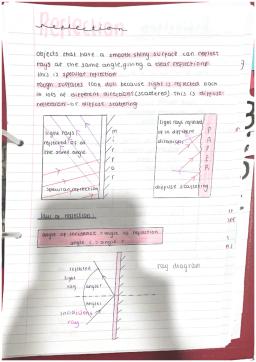 Reflection
reflection
objects that have a smooth shiny surface can reflect
rays at the same angle, giving a clear reflection.
this is specular reflection
rough surfaces look dull because light is reflected back
in lots of different directions (scattered). this is diffuse
reflection or diffuse scattering
light rays
reflected at
the same angle.
mirror
specular reflection
light rays reflected
in different
directions
PAPER
diffuse scattering
law of reflection:
angle of incidence = angle of reflection
angle i = angle r
reflected
light
ray
angle r
angle i
incidence
ray
ray diagram